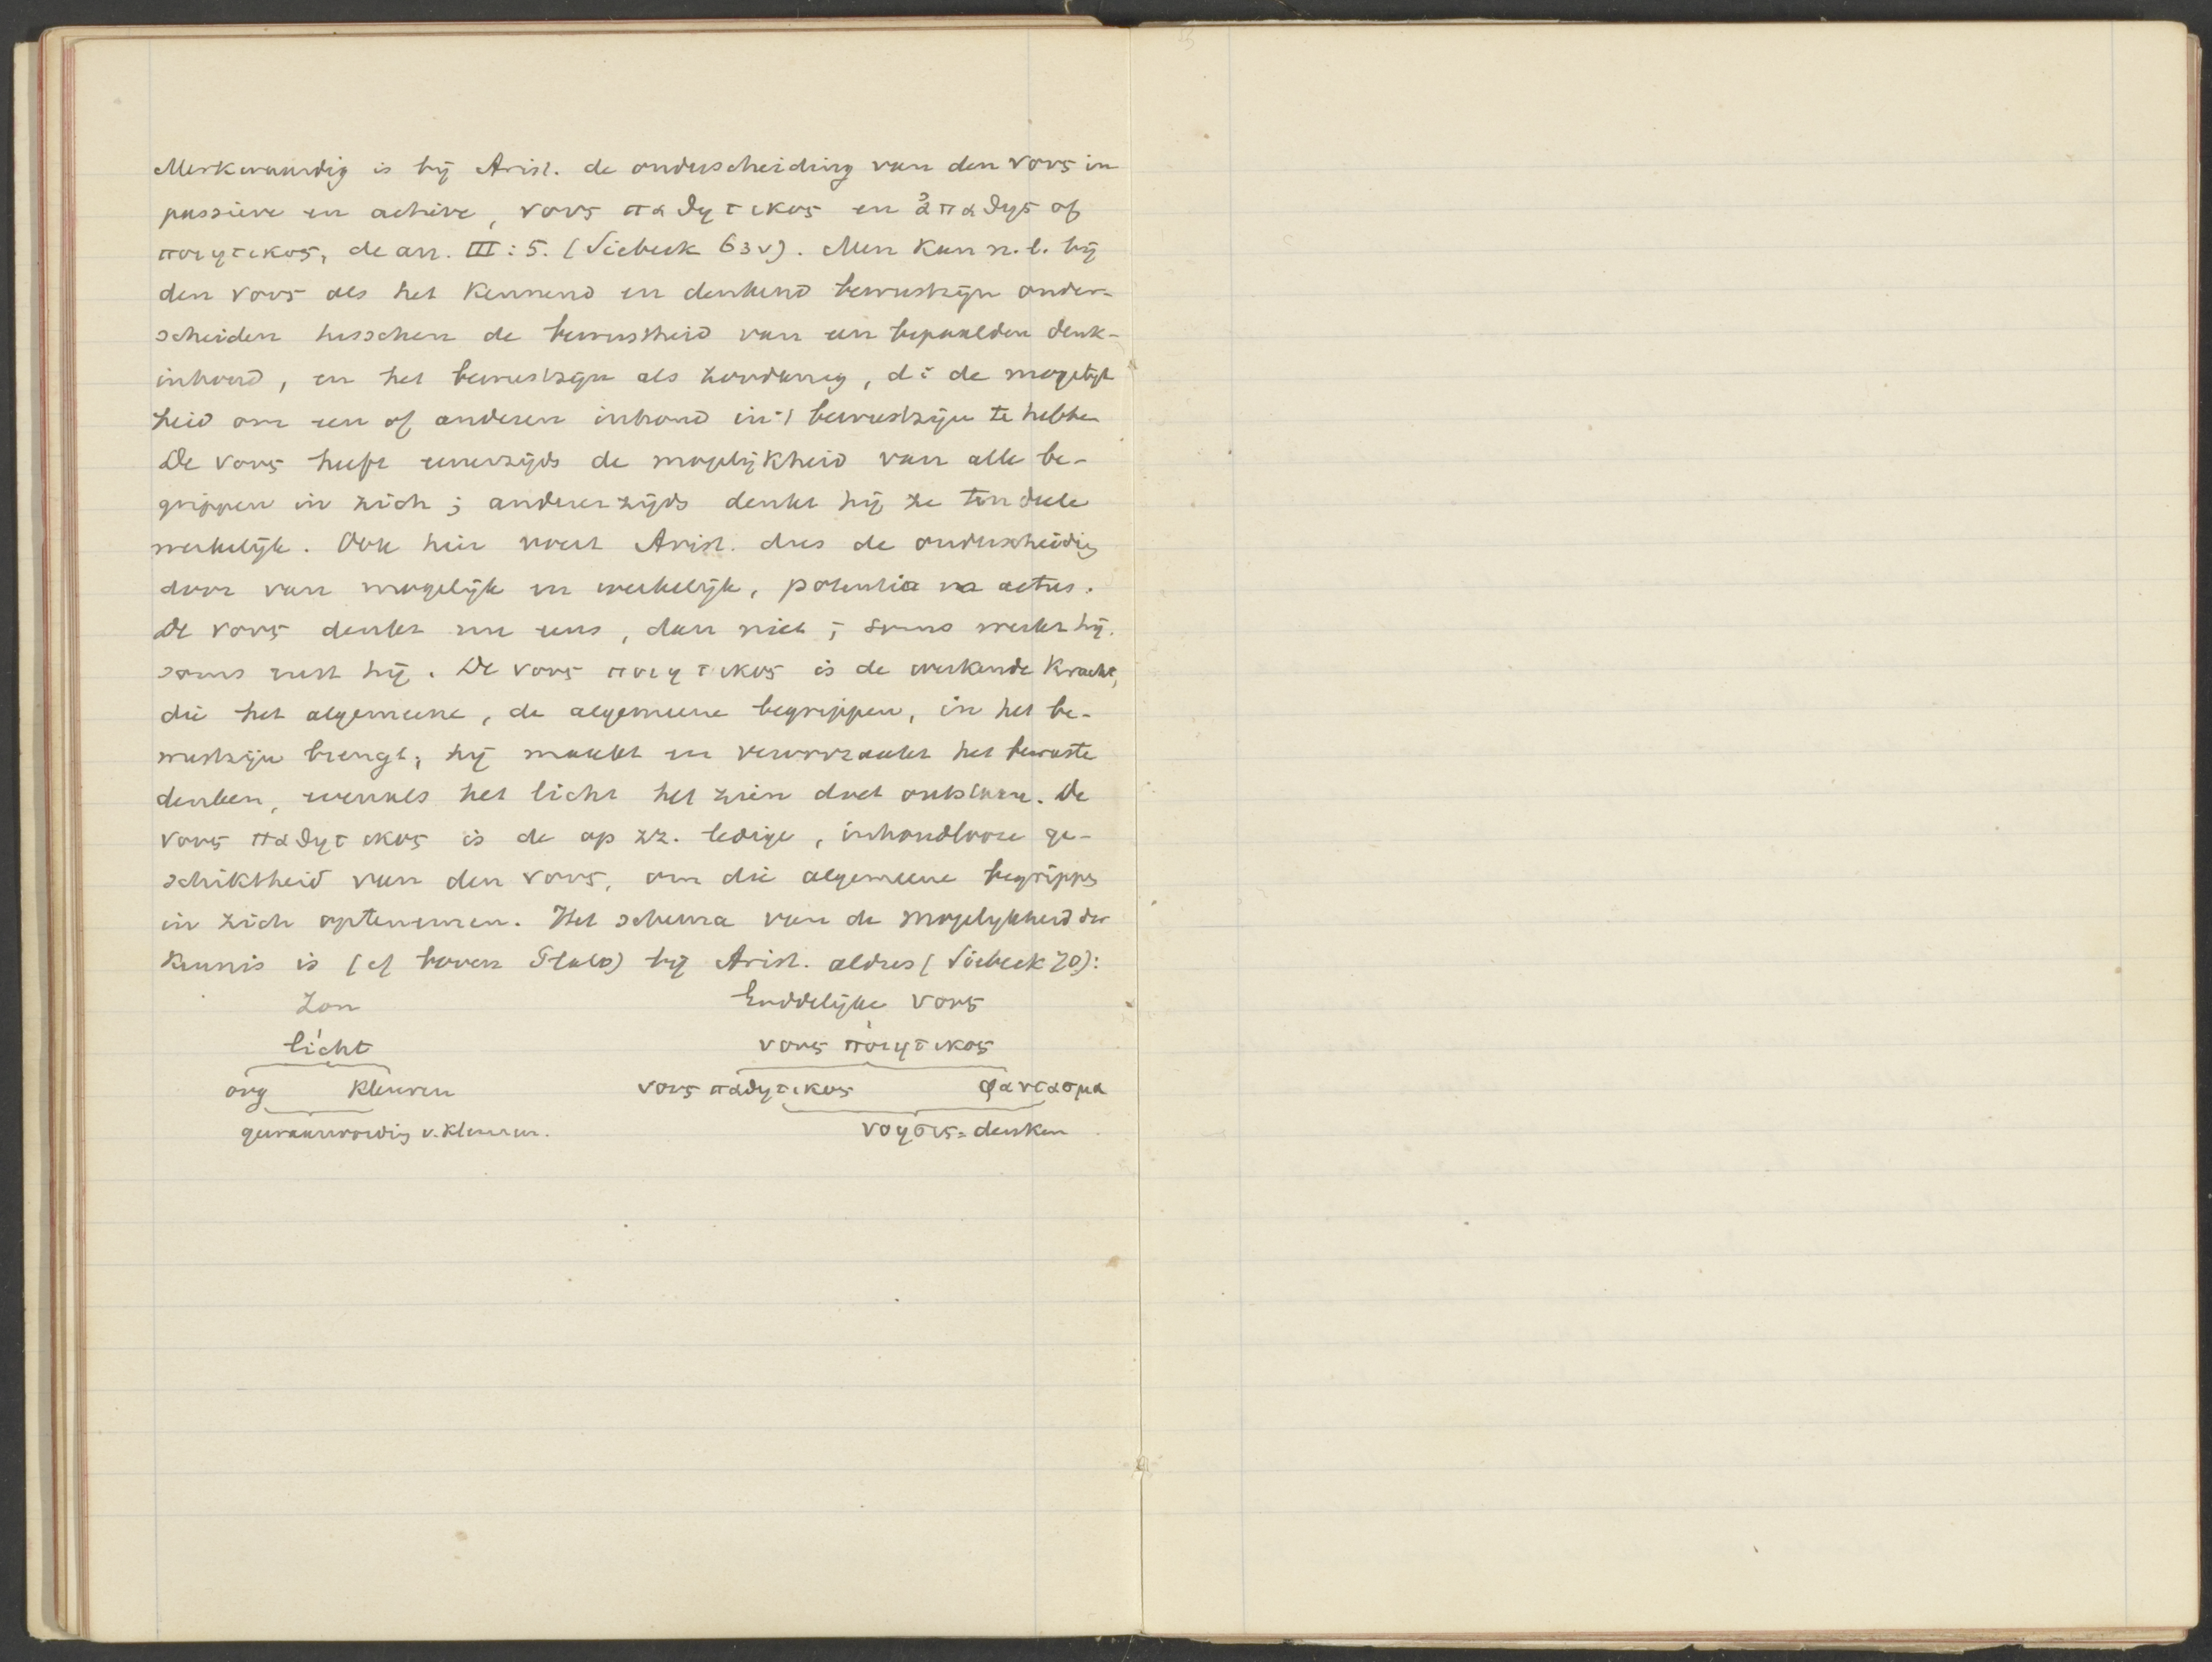 Merkwaardig is bij Arist. de onderscheiding van den νους in
passieve en actieve, νους παθητικος en ἀπαθης of
ποιητικος, de an. III : 5. (Siebeck 63 v). Men kan n.l. bij
den νους als het kennend en denkend bewustzijn onder-
scheiden tusschen de bewustheid van een bepaalden denk-
inhoud, en het bewustzijn als zoodanig, d i de mogelijk
heid om een of anderen inhoud in 't bewustzijn te hebben
De νους heeft eenerzijds de mogelijkheid van alle be-
grippen in zich ; andererzijds denkt hij ze ten deele
werkelijk. Ook hier voert Arist. dus de onderscheidig
door van mogelijk en werkelijk, potentia en actus.
De νους denkt nu eens, dan niet ; soms werkt hij.
soms rust hij. De νους ποιητικος is de werkende kracht,
die het algemeene, de algemeene begrippen, in het be-
wustzijn brengt ; hij maakt en veroorzaakt het bewuste
denken, evenals het licht het zien doet ontstaan. De
νους παθητικος is de op zz. ledige, inhoudlooze ge-
schiktheid van den νους, om die algemeene begrippen
in zich optenemen. Het schema van de mogelykheid der
kennis is (cf boven Plato) bij Arist. aldus (Siebeck 70):
Zon Goddelijke νους
licht νους ποιητικος
oog kleuren νους παθητικος φαντασμα
gewaarwordig v. kleuren. νοησις = denken